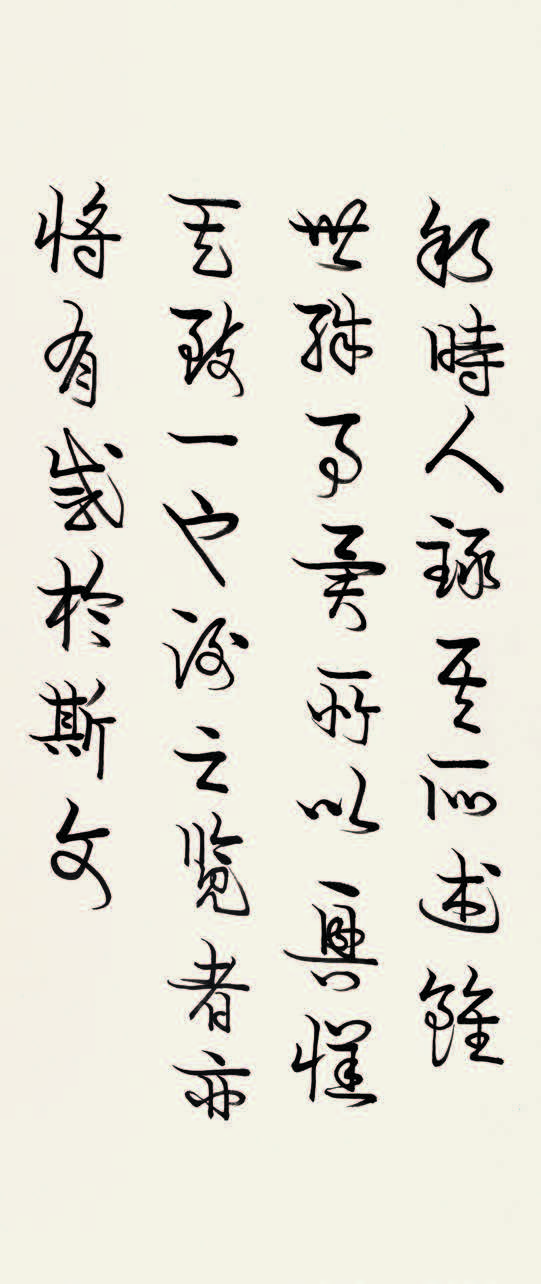 叙時人録其所述雖
世殊事異所以興懷
其致一也後之覽者亦
將有感於斯文